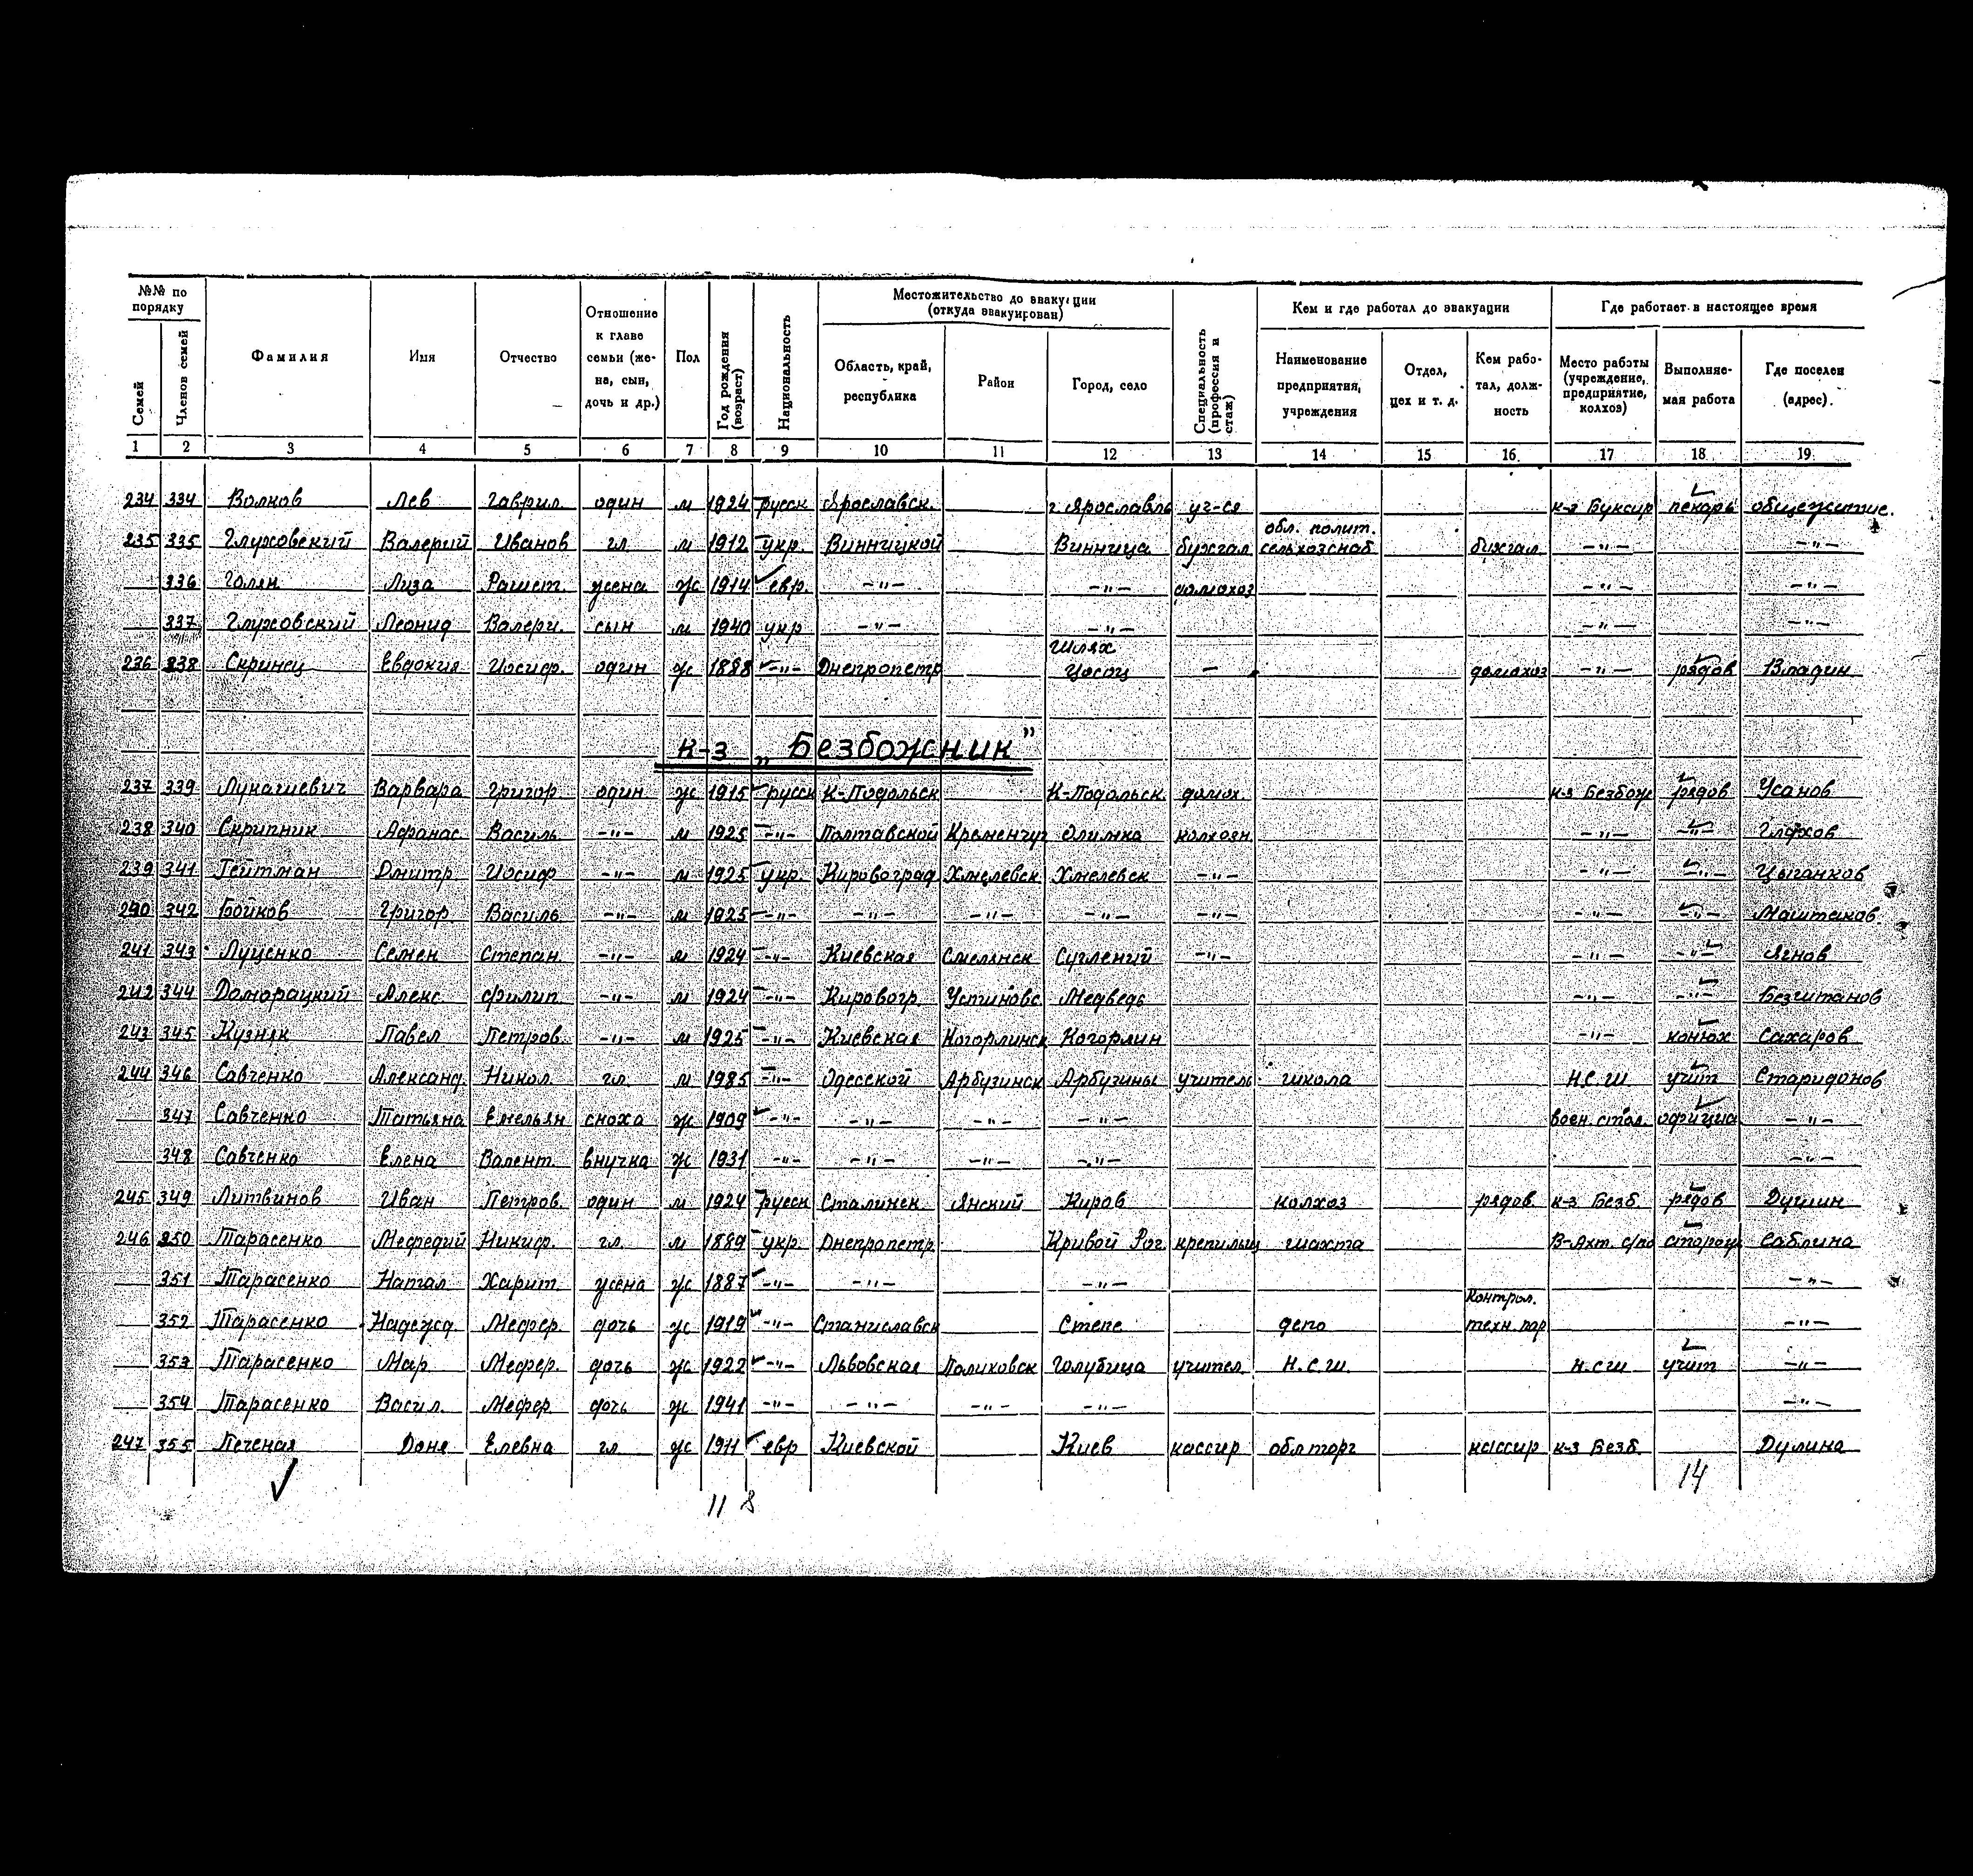 №№ по порядку | Фамилия | Имя | Отчество | Отношение к главе семьи (жена, сын, дочь и др.) | Пол | Год рождения (возраст) | Национальность | Местожительство до эвакуции (откуда эвакуирован) | Специальность (профессия и стаж) | Кем и где работал до эвакуации | Где работает в настоящее время
Семей | Членов семей | Область, край, республика | Район | Город, село | Наименование предприятия, учреждения | Отдел, цех и т. д. | Кем работал, должность | Место работы (учреждение, предприятие, колхоз) | Выполняемая работа | Где поселен (адрес).
1 2 3 4 5 6 7 8 9 10 11 12 13 14 15 16 17 18 19
234 334 Волков Лев Гаврил. один м 1924 русск Ярославск. г. Ярославль уч-ся к-з Буксир пекарь общежитие.
235 335 Глуховский Валерий Иванов гл. м 1912 укр. Винницкой Винница бухгал обл. полит. сельхозснаб бухгал -"- -"-
336 Лиза жена ж 1914 евр. -"- -"- домохоз -"- -"-
337 Глуховский Леонид Валери. сын м 1940 укр -"- -"- -"- -"-
236 338 Скринец Евдокия Иосиф. один ж 1888 -"- Днепропетр Шлях - домохоз -"- рядов Владин
к-з „Безбожник"
237 339 Лукашевич Варвара Григор один ж 1915 русск К-Подольск К-Подольск. домох. к-з Безбож рядов Усанов
238 340 Скрипник Афанас. Василь -"- м 1925 -"- Полтавской Кременчуг Олимка колхозн. -"- -"- Глухов
239 341 Гейтман Дмитр Иосиф -"- м 1925 укр. Кировоград Хмелевск. Хмелевск -"- -"- -"- Цыганков
290 342 Бойков Григор. Василь -"- м 1925 -"- -"- -"- -"- -"- -"- -"- Маштаков.
241 343 Луценко Семен Степан. -"- м 1924 -"- Киевская Смелянск -"- -"- -"- Ягнов
242 344 Доморацкий Алекс Филип. -"- м 1924 -"- Кировогр. Устиновс. Медведь -"- -"- Безштанов
243 345 Кузняк Павел Петров. -"- м 1925 -"- Киевская Когорлинск Когорлин -"- конюх Сахаров
244 346 Савченко Александ. Никол. гл. м 1985 -"- Одесской Арбузинск Арбузины учитель школа Н.С.Ш учит Старидонов
347 Савченко Татьяна Емельян сноха ж 1909 -"- -"- -"- -"- воен. стол. официа -"-
348 Савченко Елена Валент. внучка ж 1931 -"- -"- -"- -"- -"-
245 349 Литвинов Иван Петров. один м 1924 русск Сталинск Янский Киров колхоз рядов. к-з Безб. рядов Душин
246 350 Тарасенко Мефедий Никиф. гл. м 1889 укр. Днепропетр. Кривой Рог. крепильщ шахта В-Ахт. с/по сторож Саблина
351 Тарасенко Натал Харит. жена ж 1887 -"- -"- -"- -"-
352 Тарасенко Надежд. Мефер. дочь ж 1919 -"- Станиславск Степе депо Контрол. техн. пар -"-
353 Тарасенко Мар. Мефер. дочь ж 1922 -"- Львовская Полиховск Голубица учител. Н.С.Ш. Н.С.Ш учит -"-
354 Тарасенко Васил. Мефер. дочь ж 1941 -"- -"- -"- -"- -"-
247 355 Печеная Доня Елевна гл ж 1911 евр Киевской Киев кассир облторг кассир к-з Безб. Дулина
11 8 14